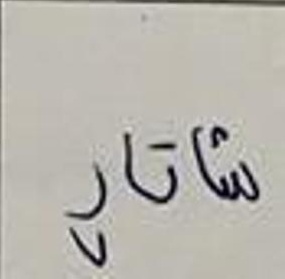 شاتاڕ